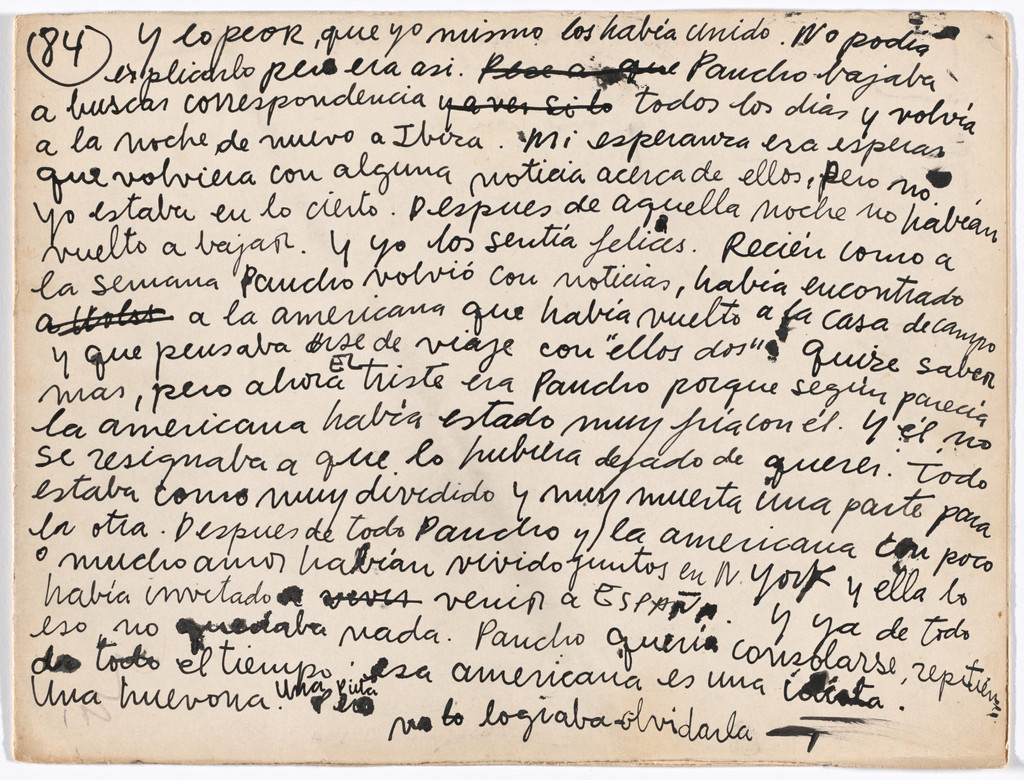 (84) Y lo peor, que yo mismo los había unido. No podía
explicarlo pero era asi. Pese a que Pancho bajaba
a buscar correspondencia y a ver si lo todos los dias y volvía
a la noche de nuevo a Ibiza. Mi esperanza era esperar
que volviera con alguna noticia acerca de ellos, pero no
yo estaba en lo cierto. Despues de aquella noche no habían
vuelto a bajar. Y yo los sentía felices. Recién como a
la semana Pancho volvió con noticias, había encontrado
a a la americana que había vuelto a la casa de campo
y que pensaba irse de viaje con "ellos dos". Quize saber
mas, pero ahora EL triste era Pancho porque según parecía
la americana había estado muy fría con él. Y él no
se resignaba a que lo hubiera dejado de querer. Todo
estaba como muy dividido y muy muerta una parte para
la otra. Despues de todo Pancho y la americana con poco
o mucho amor habían vivido juntos en N. York y ella lo
había invitado a venir a ESPAÑA. Y ya de todo
eso no quedaba nada. Pancho quería consolarse, repitiendo
de todo el tiempo: esa americana es una idiota.
Una huevona. Una puta Pero
no lo lograba olvidarla